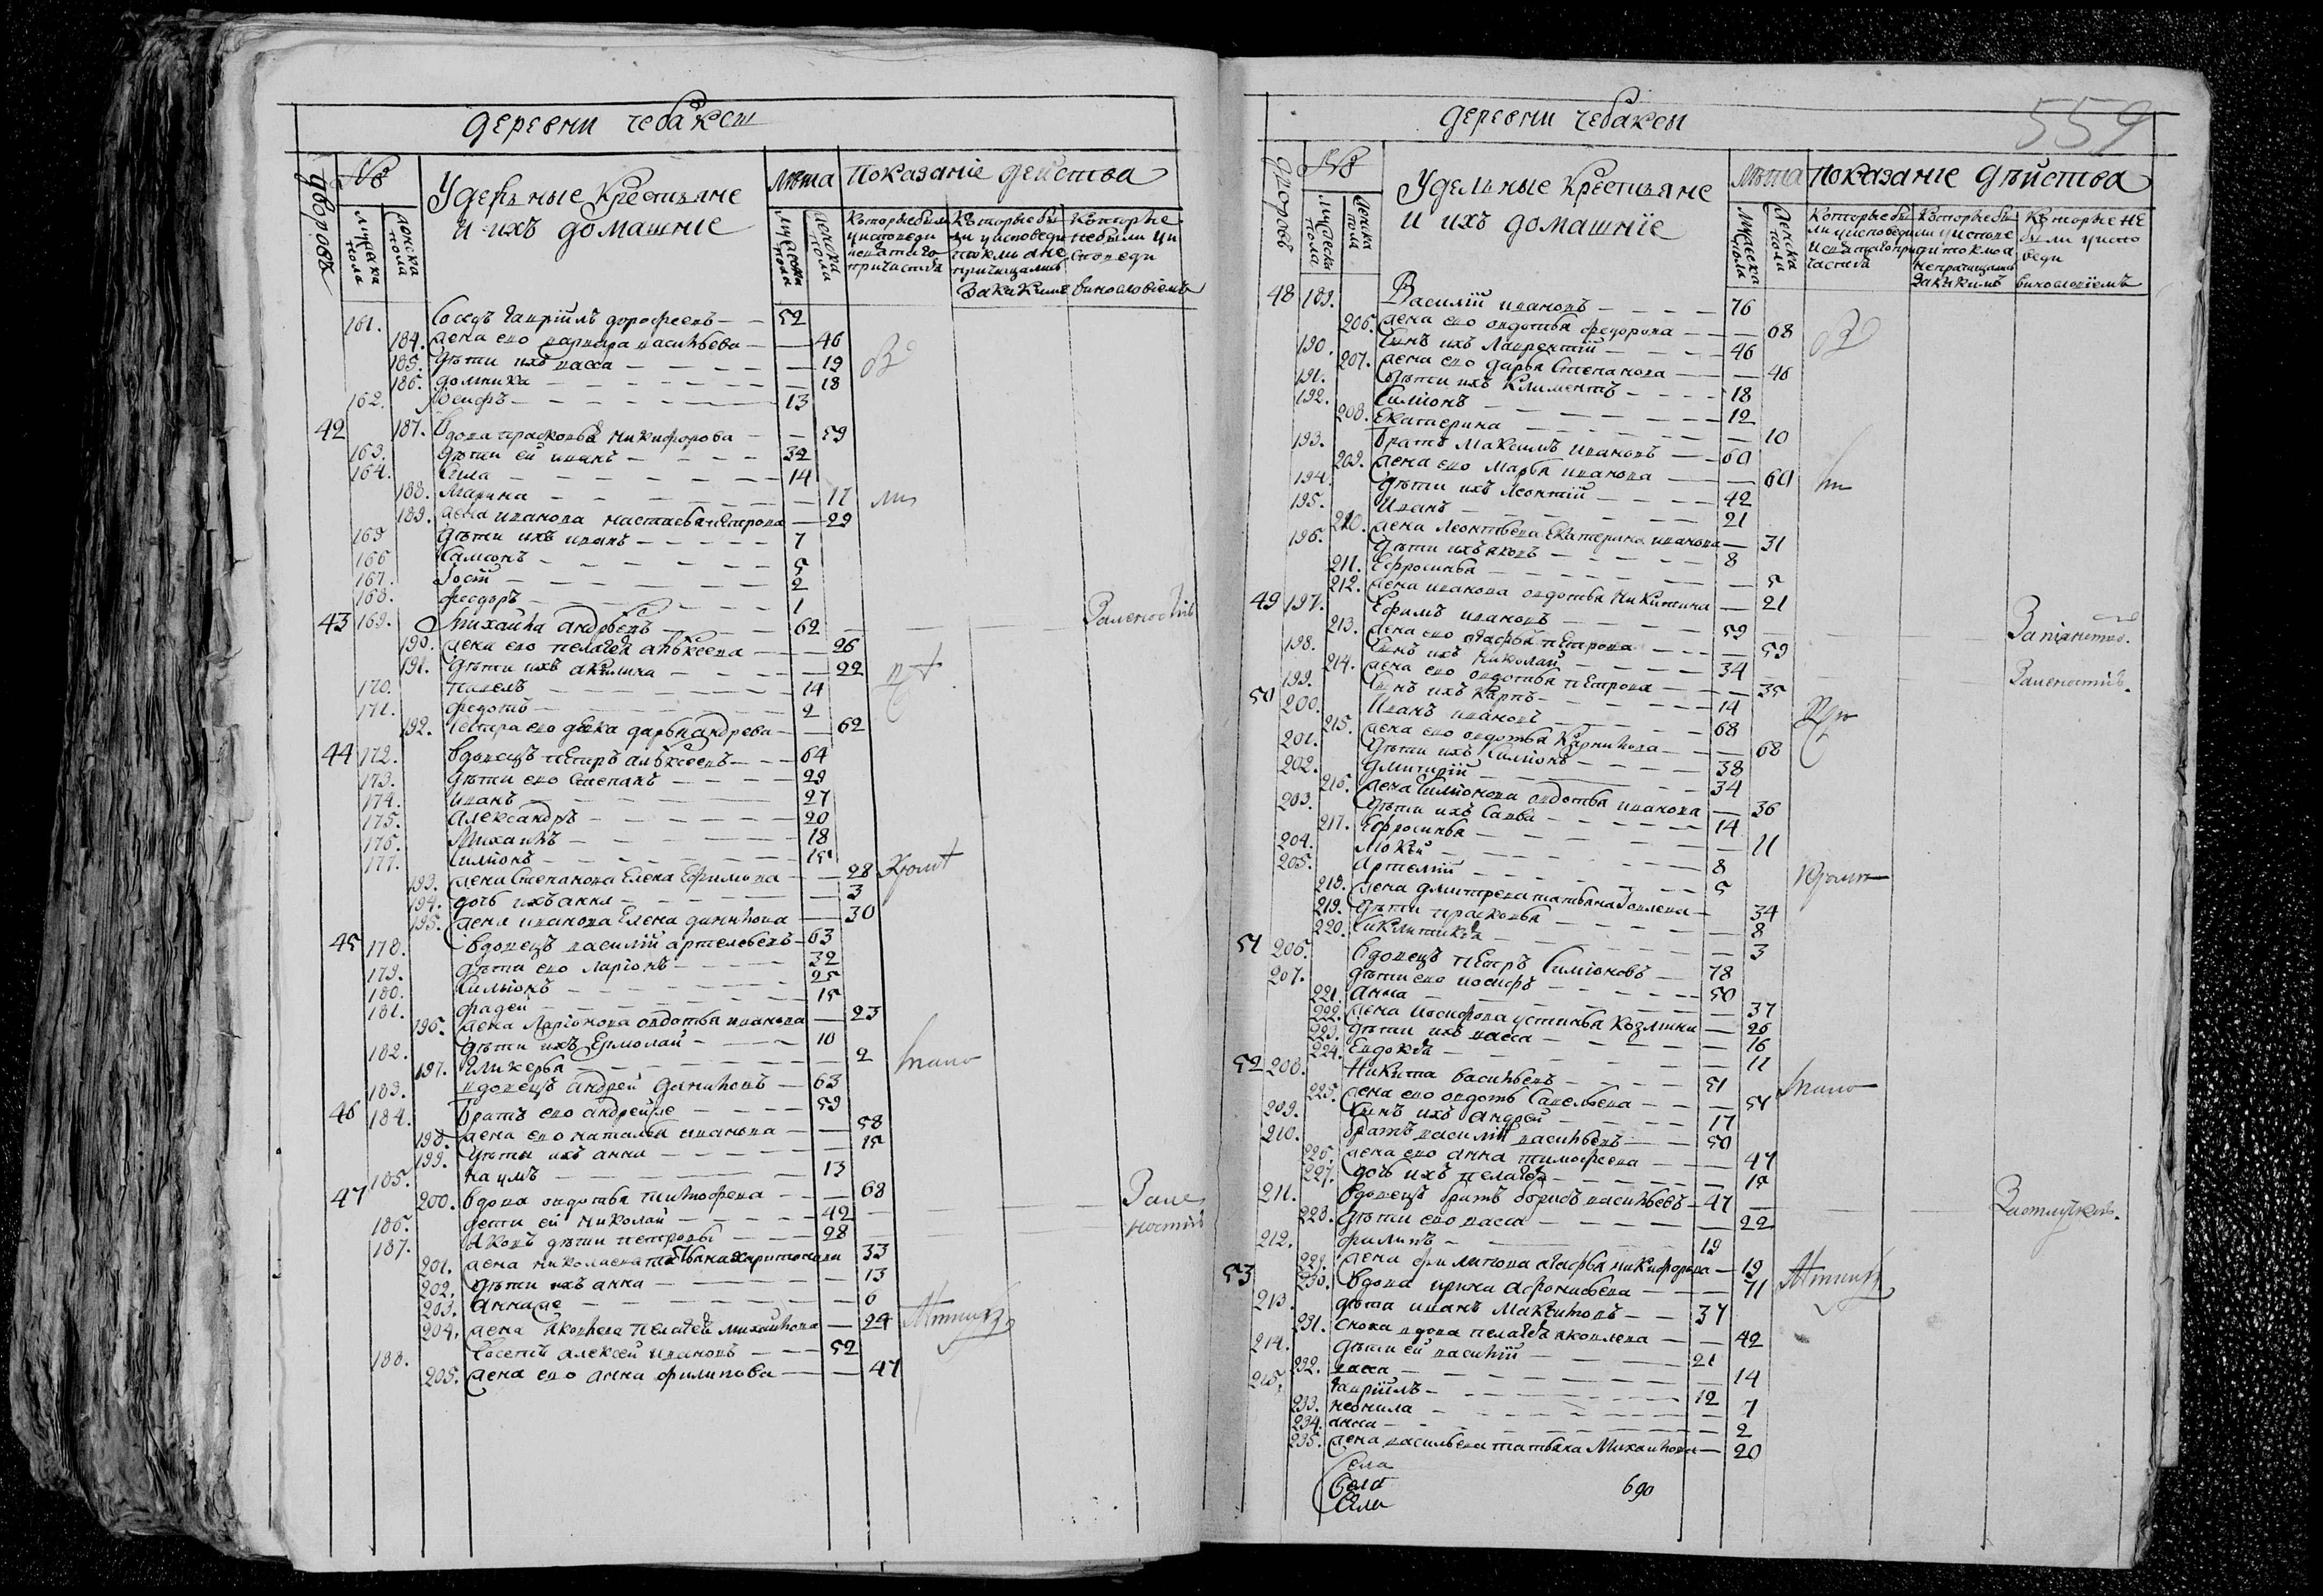 деревни чебаксы
дворовъ
№
мужеска пола
женска пола
Удельные крестьяне
и ихъ домашние
Лѣта
мужеска пола
женска пола
Показаніе действа
Которые были у исповеди и святаго причастия
Которые были у исповеди токмо а не причащались За какимъ
Которые не были у исповеди винословіемъ
161. Соседъ Гавріилъ дорофеевъ 52
184. жена ево варвара васильева 46
185. дѣти ихъ васса 19
186. домника 18
162. Иосифъ 13
42 187. Вдова прасковья никифорова 59
163. дѣти ей иванъ 32
164. Сила 14
188. Марина 17
189. жена иванова настасья петрова 29
165 дѣти ихъ иванъ 7
166 Самсонъ 5
167. 2
168. феодоръ 1
43 169. Михаила андреевъ 62 За леностію
190. жена ево пелагея алѣксеева 26
191. дѣти ихъ акилина 22
170. павелъ 14
171. федотъ 2
192. сестра ево дѣвка дарья андреева 62
44 172. вдовецъ петръ алѣксеевъ 64
173. дѣти ево Степанъ 29
174. иванъ 27
175. александръ 20
176. Михаилъ 18
177. Симионъ 15
193. жена Степанова Елена Ефимова 28
194. дочь ихъ анна 3
195. жена иванова Елена данилова 30
45 178. вдовецъ василій артемьевъ 63
179. дѣти ево ларіонъ 32
180. Симіонъ 25
181. фадей 15
196. жена Ларіонова овдотья иванова 23
182. дѣти ихъ Ермолай 10
197. Гликерья 2
183. вдовецъ андрей даниловъ 63
46 184. братъ ево андрей же 59
198. жена ево наталья иванова 58
199. дѣти ихъ анна 15
185. наумъ 13
47 200. вдова овдотья тимофеева 68
186. дети ей николай 42 За леностію
187. яковъ дѣти петровы 28
201. жена николаева татьяна харитонова 33
202. дѣти ихъ анна 13
203. анна же 6
204. жена яковлева пелагея михайлова 24
188. Соседъ алексей ивановъ 52
205. жена ево анна филипова 47
деревни чебаксы
559
дворовъ
№
мужеска пола
женска пола
Удельные крестьяне
и ихъ домашніе
Лѣта
мужеска пола
женска пола
показание дѣйства
Которые были у исповеди и святаго причастия
Которые были у исповеди токмо а не причащались За какимъ
Которые не были у исповеди винословіемъ
48 189. Василий ивановъ 76
206. жена ево овдотья федорова 68
190. Сынъ ихъ Лаврентій 46
207. жена ево дарья Степанова 46
191. дѣти ихъ Климентъ 18
192. Симіонъ 12
208. Екатерина 10
193. братъ Максимъ ивановъ 60
209. жена ево марья иванова 60
194. дѣти ихъ Леонтій 42
195. Иванъ 21
210. жена Леонтьева Екатерина иванова 31
196. дѣти ихъ яковъ 8
211. Ефросинья 5
212. жена иванова овдотья никитина 21
49 197. Ефимъ ивановъ 59 За піянство.
213. жена ево агафья петрова 59
198. Сынъ ихъ николай 34 За леностію.
214. жена ево овдотья петрова 35
199. Сынъ ихъ карпъ 14
50 200. Иванъ ивановъ 68
215. жена ево овдотья карнилова 68
201. дѣти ихъ Симіонъ 38
202. дмитрий 34
216. жена Симионова овдотья иванова 36
203. дѣти ихъ Савва 14
217. Ефросинья 11
204. Мокѣй 8
205. Артемій 5
218. жена дмитрева татьяна 34
219. дѣти прасковья 8
220. 3
51 206. вдовецъ петръ Симіоновъ 78
207. дѣти ево иосифъ 50
221. анна 37
222. жена иосифова устинья козмина 26
223. дѣти ихъ васса 16
224. Евдокѣя 11
52 208. никита васильевъ 51
225. жена ево овдотья Савельева 51
209. Сынъ ихъ андрей 17
210. братъ василій васильевъ 50
226. жена ево анна тимофеева 47
227. дочь ихъ пелагея 15
211. вдовецъ братъ борисъ васильевъ 47 За отлучкою.
228. дѣти ево васса 22
212. филипъ 19
229. жена филипова агафья никифорова 19
53 230. вдова ирина афонасьева 71
213. дѣти иванъ Максимовъ 37
231. сноха вдова пелагея яковлева 42
214. дѣти ей василій 21
232. васса 14
215. гавріилъ 12
233. неонила 7
234. анна 2
235. жена васильева татьяна Михаилова 20
Села
Села
Села
690